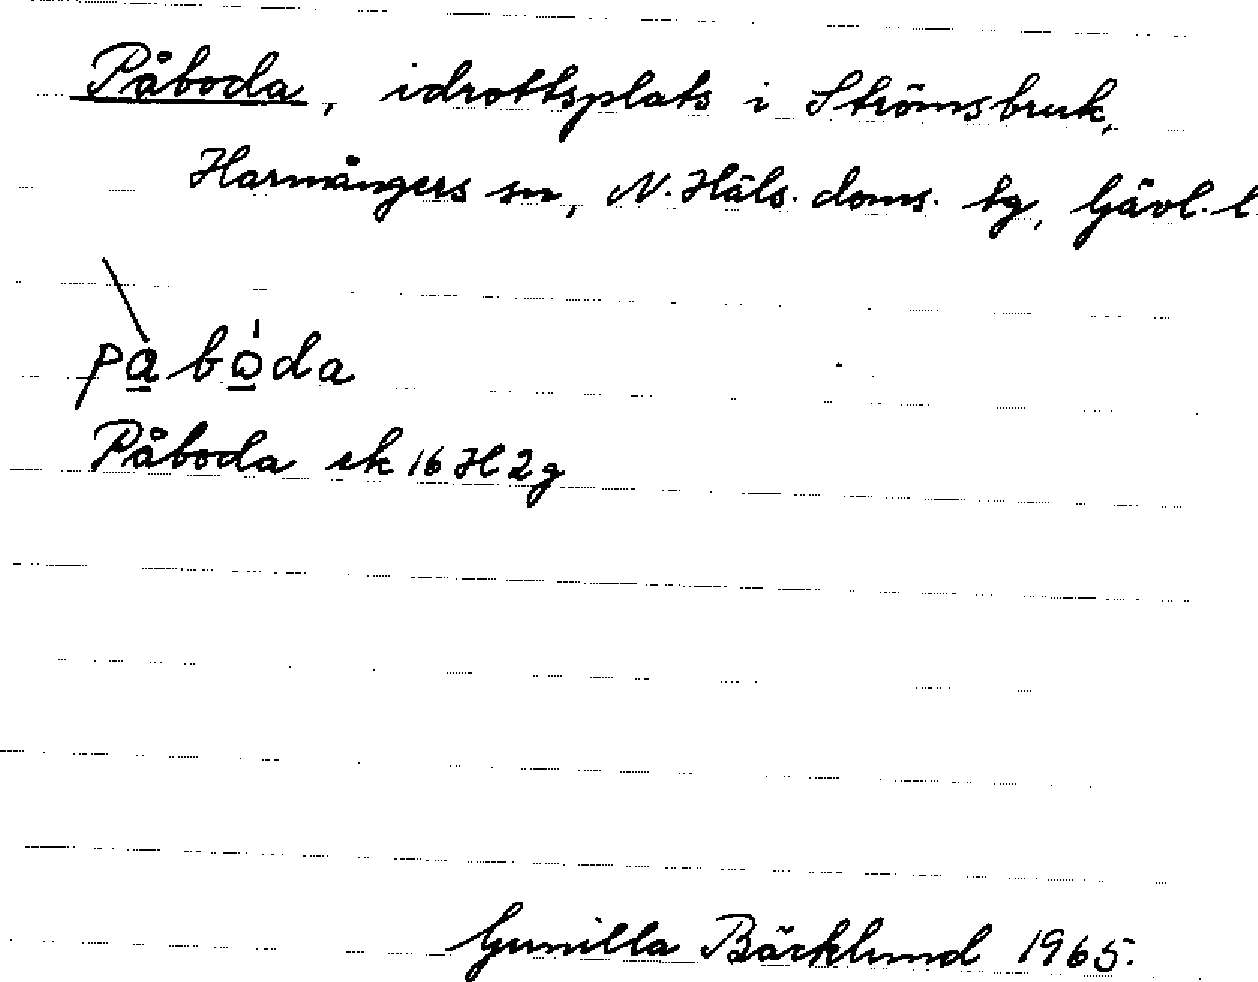 Påboda, idrottsplats i Strömsbruk,
Harmångers sn, N. Häls. doms. tg, Gävl. l.
påboda
Påboda ek 16 H 2g
Gunilla Bäcklund 1965.